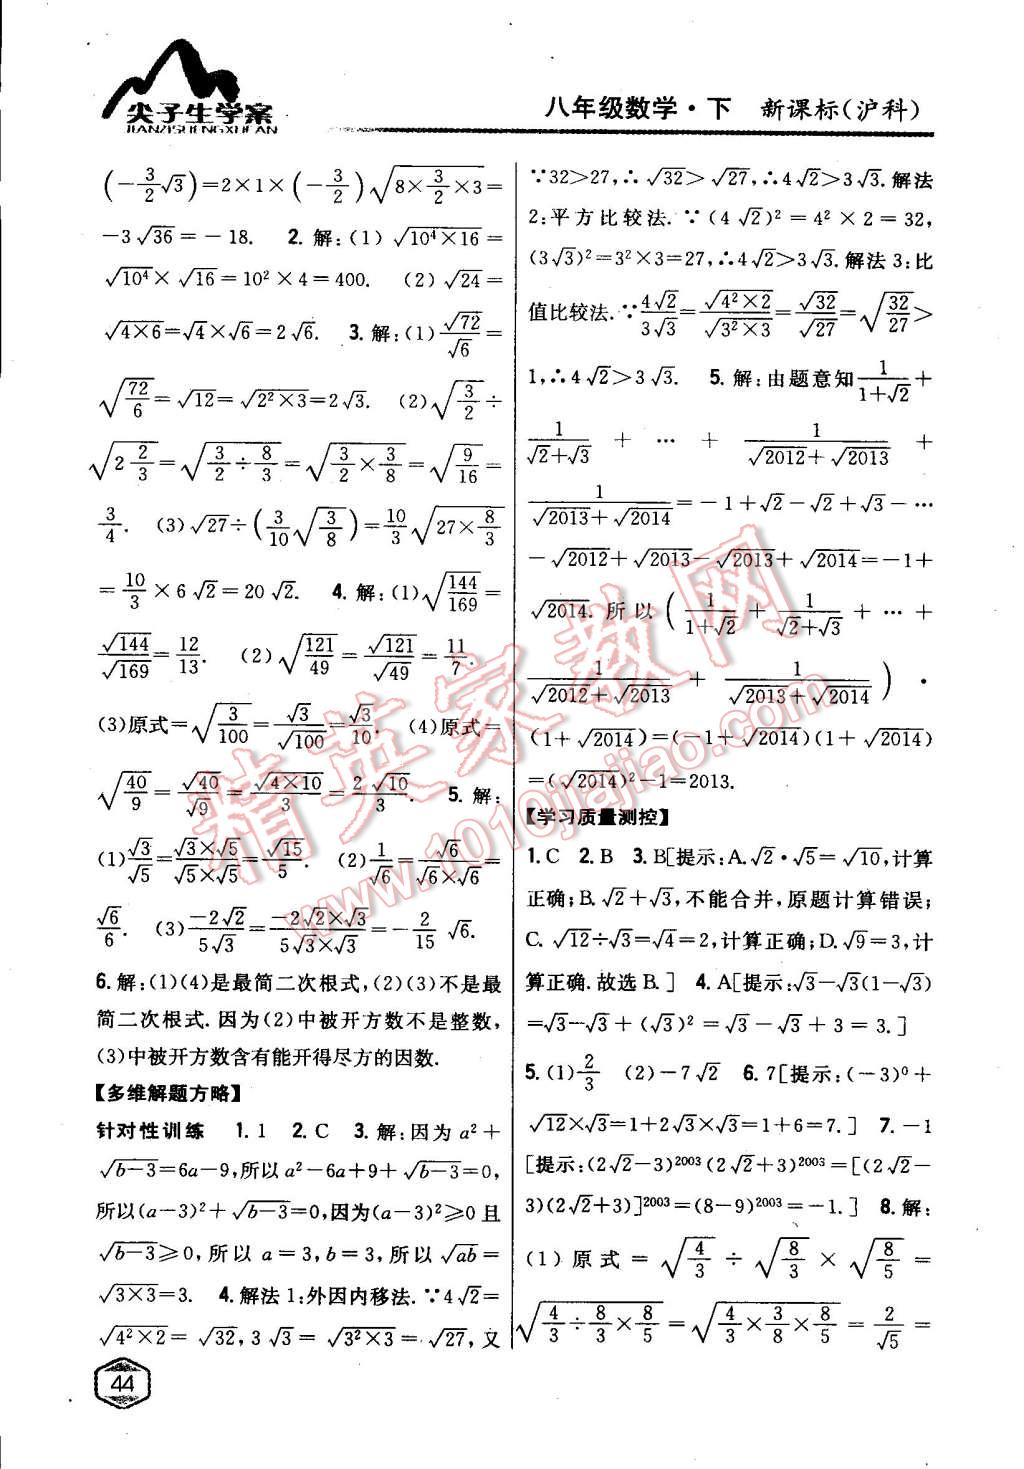 尖子生学案
JIANZISHENGXUEAN
八年级数学·下 新课标(沪科)
(-3/2√3)=2×1×(-3/2)√(8×3/2×3)=
-3√36=-18. 2.解:(1)√(10⁴×16)=
√10⁴×√16=10²×4=400. (2)√24=
√(4×6)=√4×√6=2√6. 3.解:(1)√72/√6
√(72/6)=√12=√(2²×3)=2√3. (2)√(3/2)÷
√(2 2/3)=√(3/2÷8/3)=√(3/2×3/8)=√(9/16)=
3/4. (3)√27÷(3/10√(3/8))=10/3√(27×8/3)
=10/3×6√2=20√2. 4.解:(1)√(144/169)=
√144/√169=12/13. (2)√(121/49)=√121/√49=11/7.
(3)原式=√(3/100)=√3/√100=√3/10. (4)原式=
√(40/9)=√40/√9=√(4×10)/3=2√10/3. 5.解:
(1)√3/√5=√3×√5/√5×√5=√15/5. (2)1/√6=√6/√6×√6=
√6/6. (3)-2√2/5√3=-2√2×√3/5√3×√3=-2/15√6.
6.解:(1)(4)是最简二次根式,(2)(3)不是最
简二次根式.因为(2)中被开方数不是整数,
(3)中被开方数含有能开得尽方的因数.
【多维解题方略】
针对性训练 1.1 2.C 3.解:因为a²+
√(b-3)=6a-9,所以a²-6a+9+√(b-3)=0,
所以(a-3)²+√(b-3)=0,因为(a-3)²⩾0且
√(b-3)⩾0,所以a=3,b=3,所以√(ab)=
√(3×3)=3. 4.解法1:外因内移法.∵4√2=
√(4²×2)=√32,3√3=√(3²×3)=√27,又
44
∵32>27,∴√32>√27,∴4√2>3√3.解法
2:平方比较法.∵(4√2)²=4²×2=32,
(3√3)²=3²×3=27,∴4√2>3√3.解法3:比
值比较法.∵4√2/3√3=√(4²×2)/√(3²×3)=√32/√27=√(32/27)>
1,∴4√2>3√3. 5.解:由题意知1/(1+√2)+
1/(√2+√3)+…+1/(√2012+√2013)+
1/(√2013+√2014)=-1+√2-√2+√3-…
-√2012+√2013-√2013+√2014=-1+
√2014.所以(1/(1+√2)+1/(√2+√3)+…+
1/(√2012+√2013)+1/(√2013+√2014))·
(1+√2014)=(-1+√2014)(1+√2014)
=(√2014)²-1=2013.
【学习质量测控】
1.C 2.B 3.B[提示:A.√2·√5=√10,计算
正确;B.√2+√3,不能合并,原题计算错误;
C.√12÷√3=√4=2,计算正确;D.√9=3,计
算正确.故选B.] 4.A[提示:√3-√3(1-√3)
=√3-√3+(√3)²=√3-√3+3=3.]
5.(1)2/3 (2)-7√2 6.7[提示:(-3)⁰+
√12×√3=1+2√3×√3=1+6=7.] 7.-1
[提示:(2√2-3)²⁰⁰³(2√2+3)²⁰⁰³=[(2√2-
3)(2√2+3)]²⁰⁰³=(8-9)²⁰⁰³=-1.] 8.解:
(1)原式=√(4/3)÷√(8/3)×√(8/5)=
√(4/3÷8/3×8/5)=√(4/3×3/8×8/5)=2/√5=
精英家教网
www.1010jiajiao.com